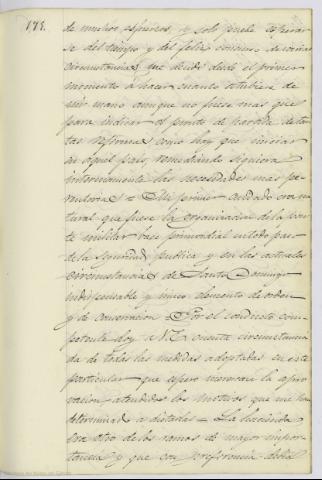 173.
de muchos esfuerzos, y solo puede esperar
se del tiempo y del feliz concurso de varias
circunstancias, que decidí desde el primer
momento á hacer cuanto estubiera de
mi mano aunque no fuese mas que
para indicar el punto de partida de tan
tas reformas como hay que iniciar
en aquel pais, remediando siquiera
interinamente las necesidades mas pe
rentorias = Mi primer cuidado era na
tural que fuese la organizacion de la par
te militar base primordial en todo pais
de la seguridad publica y en las actuales
circunstancias de Santo Domingo
indispensable y unico elemento de orden
y de conservacion = Por el conducto com
petente doy a V.E. cuenta circunstancia
da de todas las medidas adoptadas en este
particular que espero mereceran la apro
vacion atendidos los motivos que me han
determinado a dictarlas = La hacienda
era otro de los ramos de mayor impor
tancia y que con preferencia debia